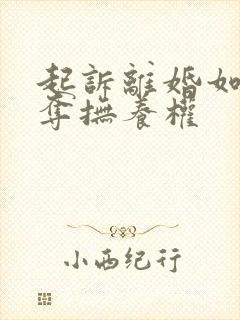 起訴離婚如
奪撫養權
小西纪行